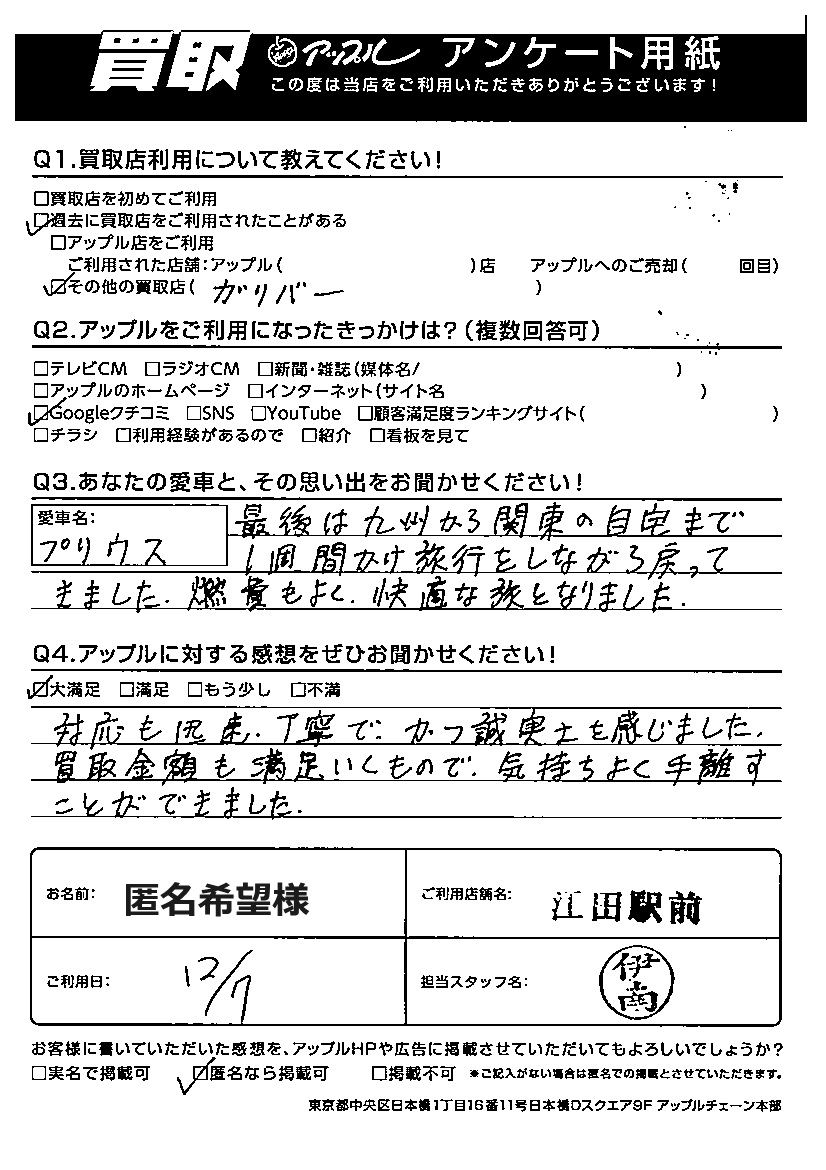 買取 アップル アンケート用紙
この度は当店をご利用いただきありがとうございます！
Q1.買取店利用について教えてください！
□買取店を初めてご利用
☑過去に買取店をご利用されたことがある
□アップル店をご利用
ご利用された店舗：アップル（ ）店 アップルへのご売却（ 回目）
☑その他の買取店（ ガリバー ）
Q2.アップルをご利用になったきっかけは？（複数回答可）
□テレビCM □ラジオCM □新聞・雑誌（媒体名/ ）
□アップルのホームページ □インターネット（サイト名 ）
☑Googleクチコミ □SNS □YouTube □顧客満足度ランキングサイト（ ）
□チラシ □利用経験があるので □紹介 □看板を見て
Q3.あなたの愛車と、その思い出をお聞かせください！
愛車名：
プリウス
最後は九州から関東の自宅まで
1週間かけ旅行をしながら戻って
きました。燃費もよく、快適な旅となりました。
Q4.アップルに対する感想をぜひお聞かせください！
☑大満足 □満足 □もう少し □不満
対応も迅速、丁寧で、かつ誠実さを感じました。
買取金額も満足いくもので、気持ちよく手離す
ことができました。
お名前： 匿名希望様 ご利用店舗名： 江田駅前
ご利用日： 12/7 担当スタッフ名： 伊南
お客様に書いていただいた感想を、アップルHPや広告に掲載させていただいてもよろしいでしょうか？
□実名で掲載可 ☑匿名なら掲載可 □掲載不可 ※ご記入がない場合は匿名での掲載とさせていただきます。
東京都中央区日本橋1丁目16番11号日本橋Dスクエア9F アップルチェーン本部